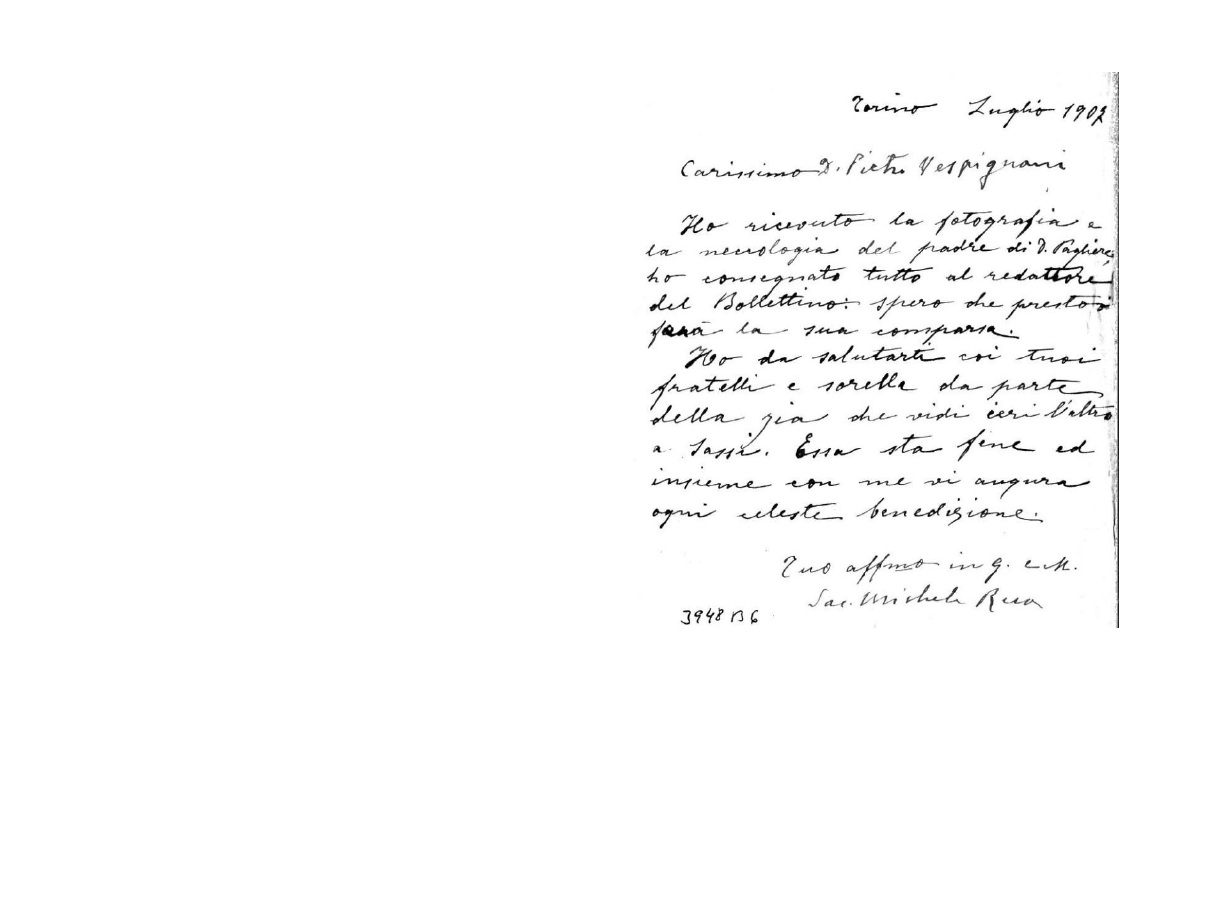 Torino Luglio 1902
Carissimo D. Pietro Vespignani
Ho ricevuto la fotografia e
la necrologia del padre di D. Pagliere,
ho consegnato tutto al redattore
del Bollettino: spero che presto
farà la sua comparsa.
Ho da salutarti coi tuoi
fratelli e sorella da parte
della zia che vidi ieri l'altro
a Sassi. Essa sta bene ed
insieme con me vi augura
ogni celeste benedizione.
Tuo affmo in G. e M.
Sac. Michele Rua
3948 B 6